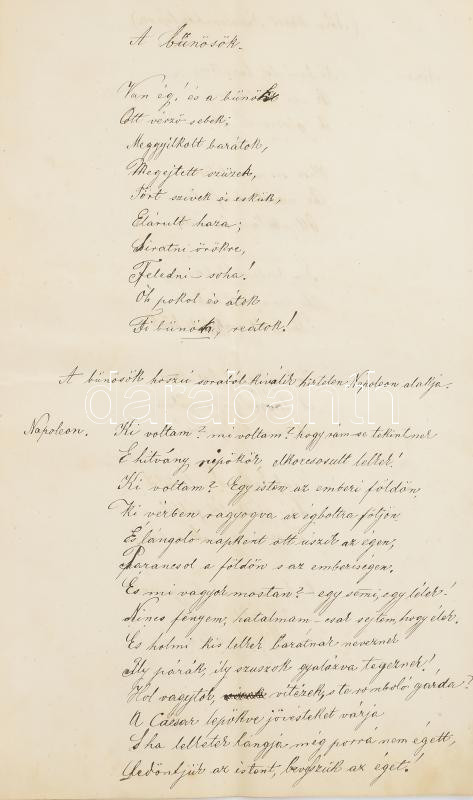 A bűnösök.
Van ég! és a bűnök
Ott vésző sebek;
Meggyilkolt barátok,
Megejtett szüzek,
Tört szivek és eskük,
Elárult haza;
Siratni örökre,
Feledni – soha!
Óh pokol és átok
Ti bűnök, reátok!
A bűnösök hosszú sorából kiválik hirtelen Napoleon alakja.
darabanth
Napoleon. Ki voltam? mi voltam? hogy rám se tekint
E hitvány, elkorcsosult lelkek!
Ki voltam? – Egy isten az emberi földön,
Ki vérben ragyogva az égboltra földjön,
És lángoló napként ott uszik az égen;
Parancsol a földön s az emberiségen.
És mi vagyok mostan? – egy semi, egy lélek!
Nincs fényem, hatalmam – csak sejtem, hogy élek.
És holmi kis lelkek barátnak neveznek
Ily párák, ily szuszok gyalázva tegeznek!
Hol vagytok, vitézek, s te romboló garda?
A Caesar jövésteket várja
S ha lelketek langja még porrá nem égett,
Ledöntjük az istent, bevesszük az eget!